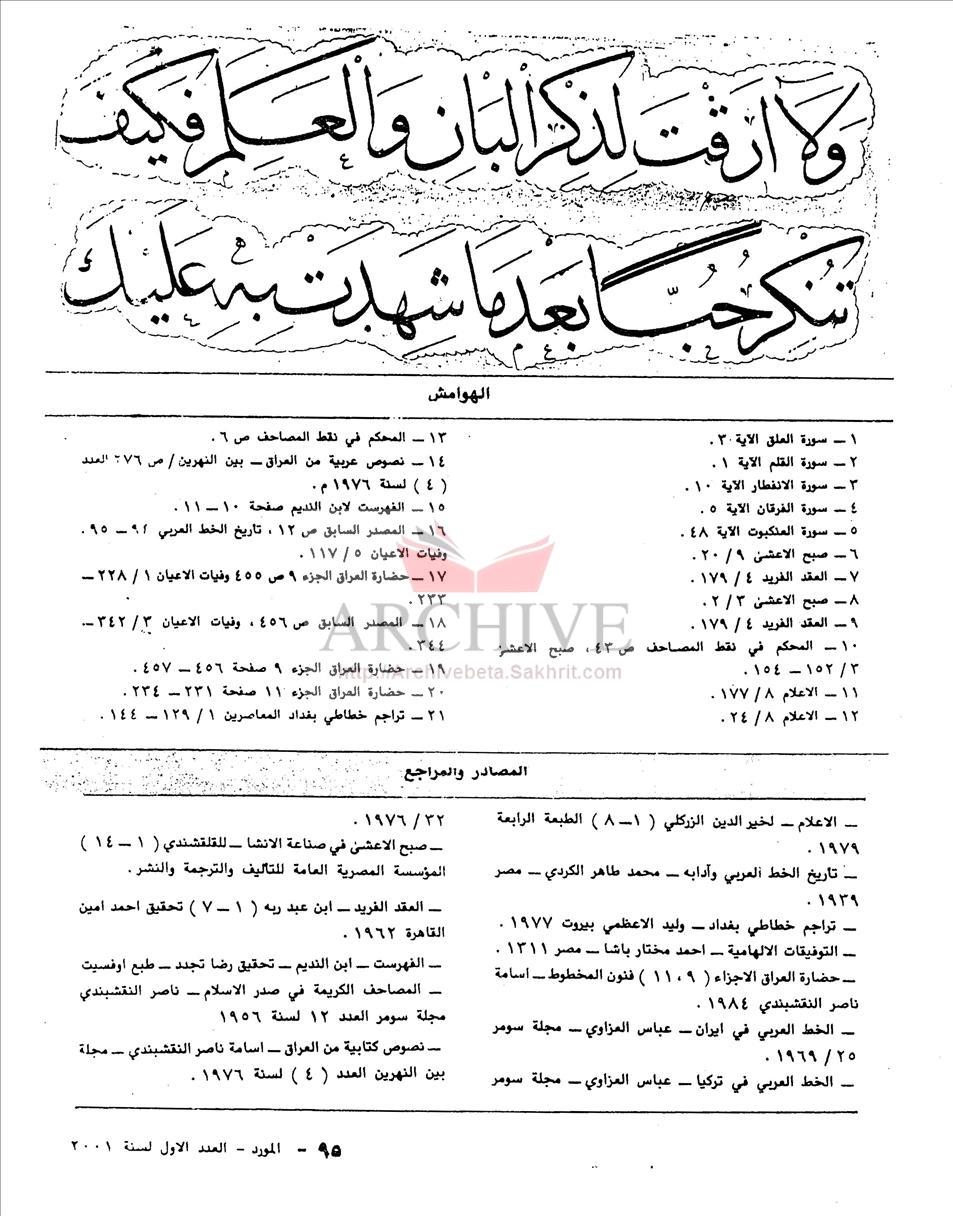 ولا أرقت لذكر البان والعلم فكيف
تنكر حبا بعدما شهدت به عليك
الهوامش
١ ــ سورة العلق الآية ٣ .
٢ ــ سورة القلم الآية ١ .
٣ ــ سورة الانفطار الآية ١٠ .
٤ ــ سورة الفرقان الآية ٥ .
٥ ــ سورة العنكبوت الآية ٤٨ .
٦ ــ صبح الاعشىٰ ٩ / ٢٠ .
٧ ــ العقد الفريد ٤ / ١٧٩ .
٨ ــ صبح الاعشىٰ ٣ / ٢ .
٩ ــ العقد الفريد ٤ / ١٧٩ .
١٠ ــ المحكم في نقط المصاحف ص ٤٣ ، صبح الاعشىٰ
٣ / ١٥٢ ــ ١٥٤ .
١١ ــ الاعلام ٨ / ١٧٧ .
١٢ ــ الاعلام ٨ / ٢٤ .
١٣ ــ المحكم في نقط المصاحف ص ٦ .
١٤ ــ نصوص عربية من العراق ــ بين النهرين / ص ٢٧٦ العدد
( ٤ ) لسنة ١٩٧٦ م .
١٥ ــ الفهرست لابن النديم صفحة ١٠ ــ ١١ .
١٦ ــ المصدر السابق ص ١٢ ، تاريخ الخط العربي ٩٤ ــ ٩٥ .
وفيات الاعيان ٥ / ١١٧ .
١٧ ــ حضارة العراق الجزء ٩ ص ٤٥٥ وفيات الاعيان ١ / ٢٢٨ ــ
٢٣٣ .
١٨ ــ المصدر السابق ص ٤٥٦ ، وفيات الاعيان ٣ / ٣٤٢ ــ
٣٤٤ .
١٩ ــ حضارة العراق الجزء ٩ صفحة ٤٥٦ ــ ٤٥٧ .
٢٠ ــ حضارة العراق الجزء ١١ صفحة ٢٣١ ــ ٢٣٤ .
٢١ ــ تراجم خطاطي بغداد المعاصرين ١ / ١٢٩ ــ ١٤٤ .
ARCHIVE
http://Archivebeta.Sakhrit.com
المصادر والمراجع
ــ الاعلام ــ لخير الدين الزركلي ( ١ ــ ٨ ) الطبعة الرابعة
١٩٧٩ .
ــ تاريخ الخط العربي وآدابه ــ محمد طاهر الكردي ــ مصر
١٩٣٩ .
ــ تراجم خطاطي بغداد ــ وليد الاعظمي بيروت ١٩٧٧ .
ــ التوفيقات الالهامية ــ احمد مختار باشا ــ مصر ١٣١١ .
ــ حضارة العراق الاجزاء ( ٩ ، ١١ ) فنون المخطوط ــ اسامة
ناصر النقشبندي ١٩٨٤ .
ــ الخط العربي في ايران ــ عباس العزاوي ــ مجلة سومر
٢٥ / ١٩٦٩ .
ــ الخط العربي في تركيا ــ عباس العزاوي ــ مجلة سومر
٣٢ / ١٩٧٦ .
ــ صبح الاعشىٰ في صناعة الانشا ــ للقلقشندي ( ١ ــ ١٤ )
المؤسسة المصرية العامة للتأليف والترجمة والنشر .
ــ العقد الفريد ــ ابن عبد ربه ( ١ ــ ٧ ) تحقيق احمد امين
القاهرة ١٩٦٢ .
ــ الفهرست ــ ابن النديم ــ تحقيق رضا تجدد ــ طبع اوفسيت
ــ المصاحف الكريمة في صدر الاسلام ــ ناصر النقشبندي
مجلة سومر العدد ١٢ لسنة ١٩٥٦
ــ نصوص كتابية من العراق ــ اسامة ناصر النقشبندي ــ مجلة
بين النهرين العدد ( ٤ ) لسنة ١٩٧٦ .
٩٥ - المورد - العدد الاول لسنة ٢٠٠١